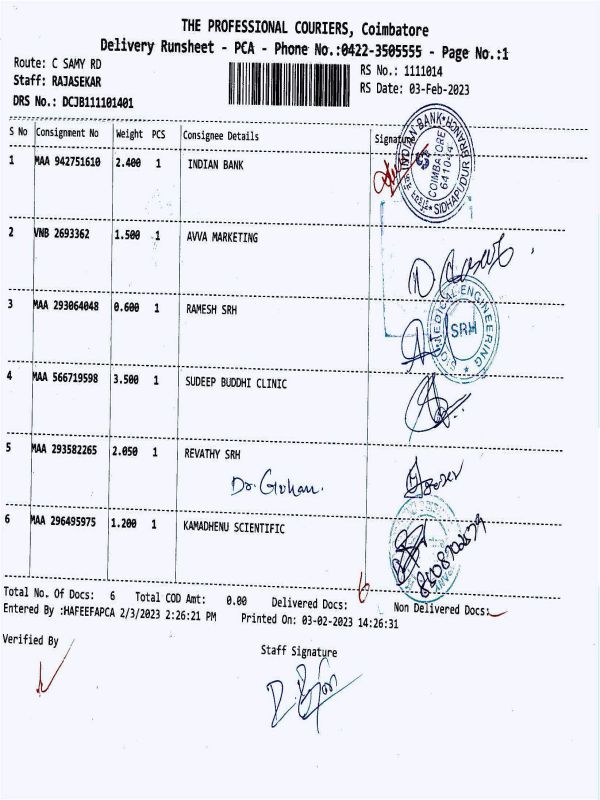 THE PROFESSIONAL COURIERS, Coimbatore
Delivery Runsheet - PCA - Phone No.:0422-3505555 - Page No.:1
Route: C SAMY RD
Staff: RAJASEKAR
DRS No.: DCJB111101401
RS No.: 1111014
RS Date: 03-Feb-2023
S No Consignment No Weight PCS Consignee Details Signature
1 MAA 942751610 2.400 1 INDIAN BANK
INDIAN BANK
COIMBATORE
641044
SIDHAPUDUR BRANCH
2 VNB 2693362 1.500 1 AVVA MARKETING
3 MAA 293064048 0.600 1 RAMESH SRH
MEDICAL ENGINEERING
SRH
4 MAA 566719598 3.500 1 SUDEEP BUDDHI CLINIC
5 MAA 293582265 2.050 1 REVATHY SRH
Dr. Gohan.
6 MAA 296495975 1.200 1 KAMADHENU SCIENTIFIC
Total No. Of Docs: 6 Total COD Amt: 0.00 Delivered Docs: 6 Non Delivered Docs:
Entered By :HAFEEFAPCA 2/3/2023 2:26:21 PM Printed On: 03-02-2023 14:26:31
Verified By
Staff Signature